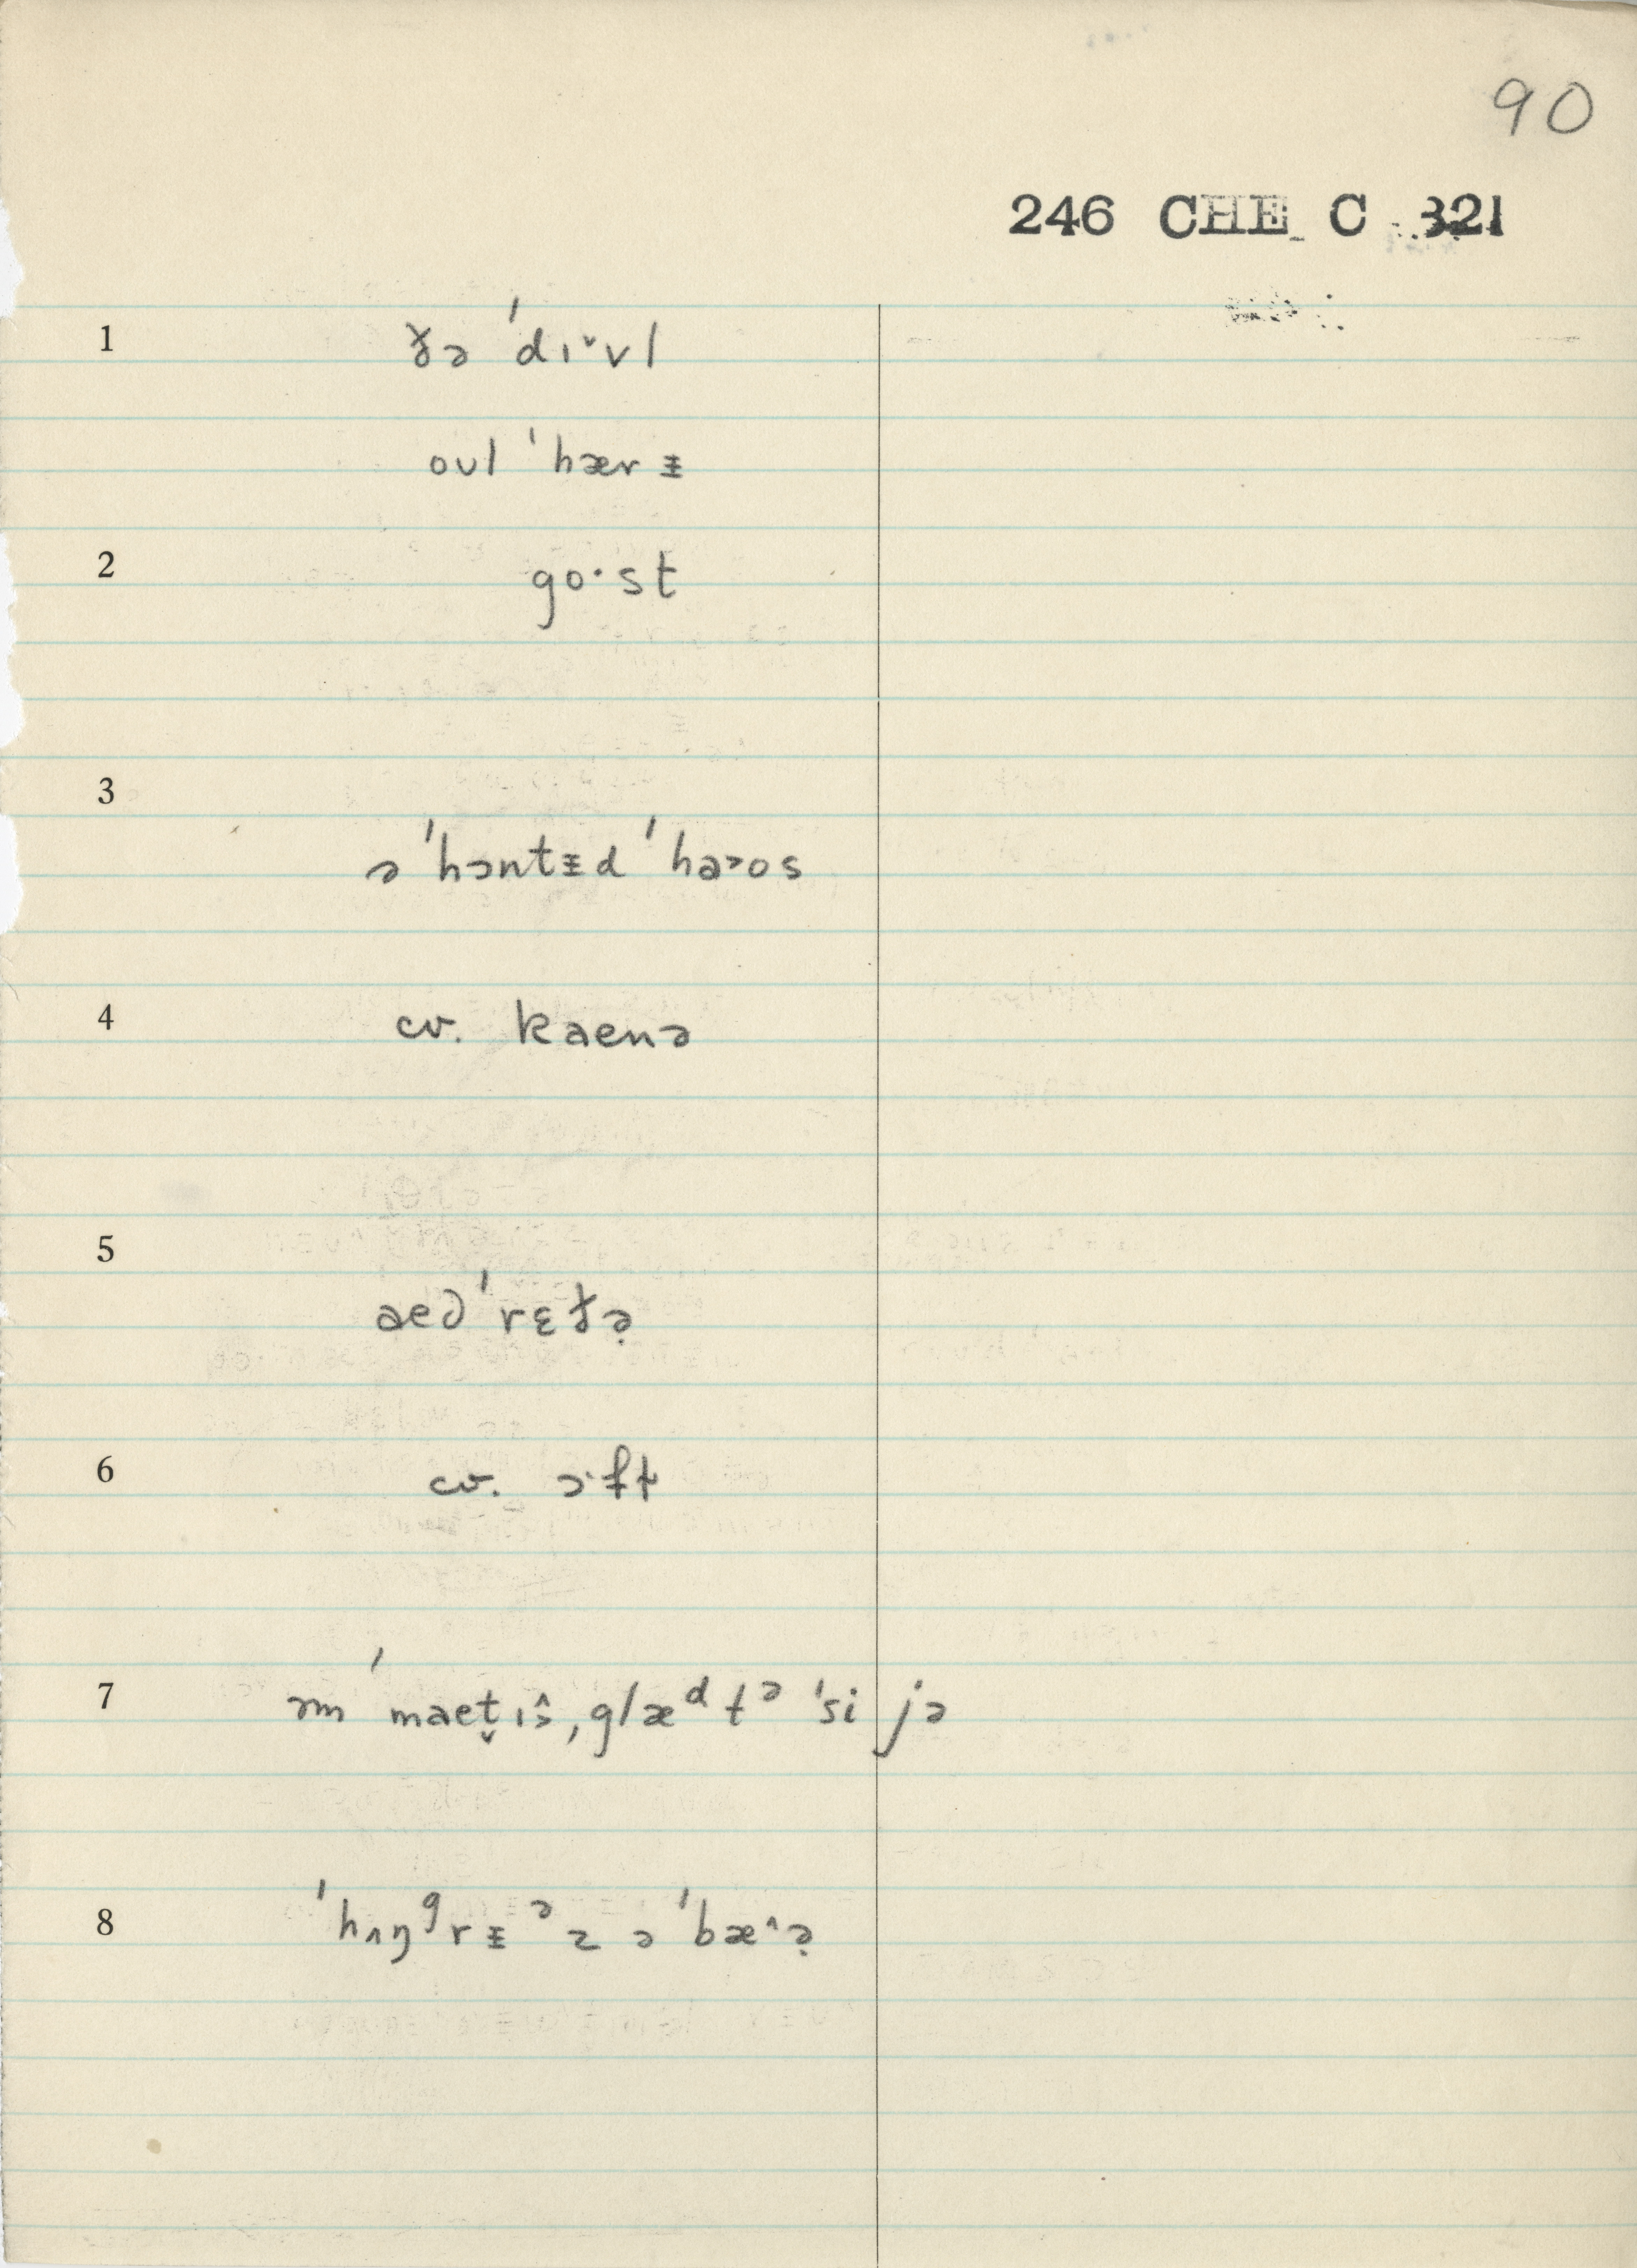 90
246 CHE C 321
1 ðə ˈdɪ˅vl
oʊl ˈhærᵻ
2 go·st
3
ə ˈhɔntᵻd ˈhaɔos
4 cv. kaenə
5
aeəˈrɛðə̣
6 cv. ɔ·ft
7 əm ˈmaet̬ɪŝ, glæᵈ tᵊ ˈsi jə
8 ˈhʌŋᶢrᵻ ᵊz ə ˈbæ^ə̣